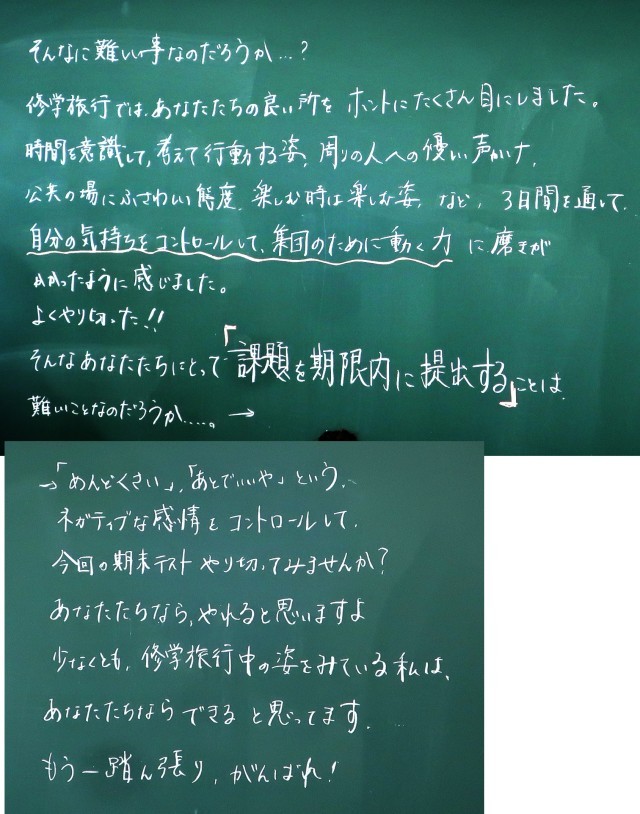 そんなに難しい事なのだろうか…?
修学旅行では、あなたたちの良い所をホントにたくさん目にしました。
時間を意識して、考えて行動する姿、周りの人への優しい声かけ、
公共の場にふさわしい態度、楽しむ時は楽しむ姿、など、3日間を通して、
自分の気持ちをコントロールして、集団のために動く力に磨きが
かかったように感じました。
よくやり切った!!
そんなあなたたちにとって「課題を期限内に提出する」ことは、
難しいことなのだろうか……。→
→「めんどくさい」、「あとでいいや」という、
ネガティブな感情をコントロールして、
今回の期末テストやり切ってみませんか?
あなたたちなら、やれると思いますよ
少なくとも、修学旅行中の姿をみている私は、
あなたたちならできると思ってます。
もう一踏ん張り、がんばれ!